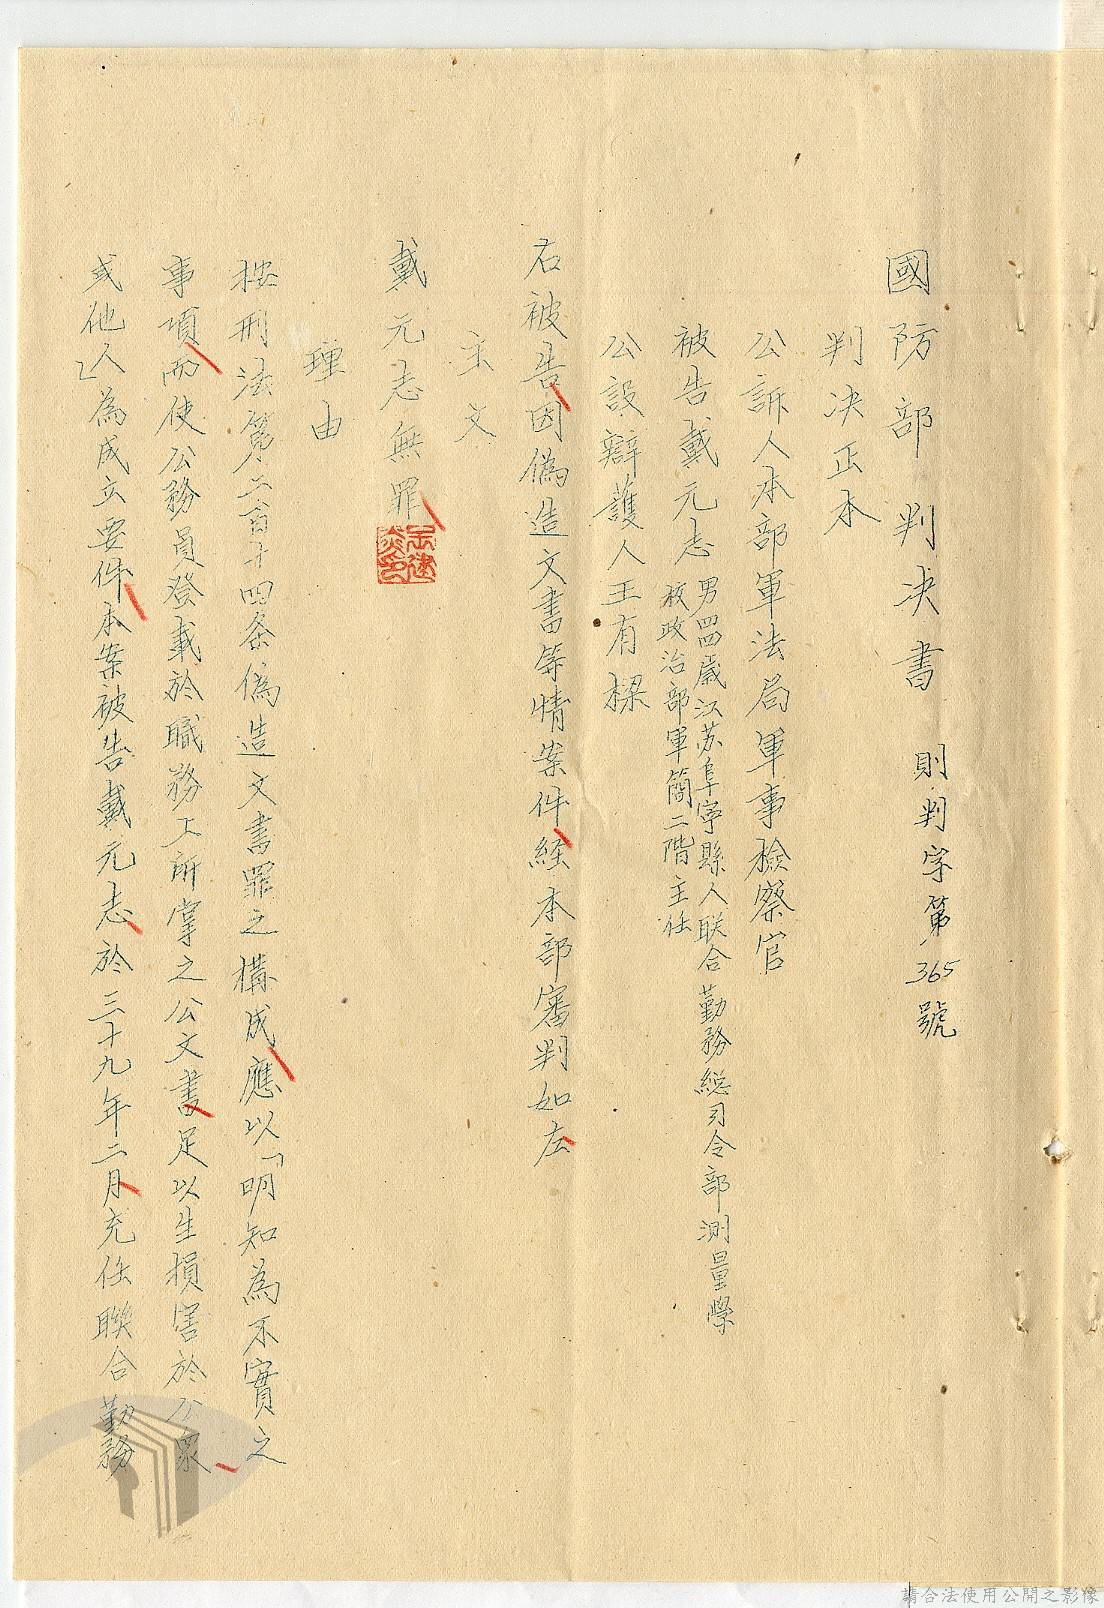 國防部判决書 則判字第365號
判决正本
公訴人本部軍法局軍事檢察官
被告戴元志 男四四歲江苏阜寧縣人联合勤務総司令部測量學
校政治部軍簡二階主任
公設辯護人王有樑
右被告因偽造文書等情案件経本部審判如左
主文
戴元志無罪
理由
按刑法第二百十四条偽造文書罪之構成應以「明知為不實之
事項而使公務員登載於職務上所掌之公文書足以生損害於公眾
或他人」為成立要件本案被告戴元志於三十九年二月充任聯合勤務
請合法使用公開之影像